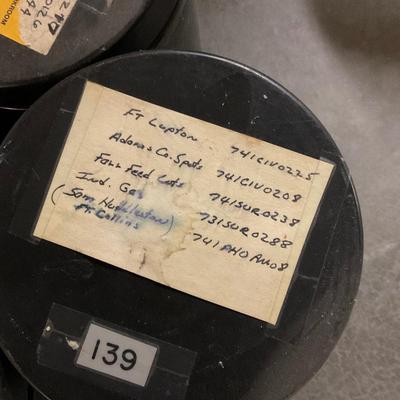 Ft Lupton 741CIV0225
Adams Co. Spots 741CIV0208
Farr Feed Lots 741SUR0238
Ind. Gas 731SUR0288
(Sam Huddleston) 741PHO
Ft. Collins
139